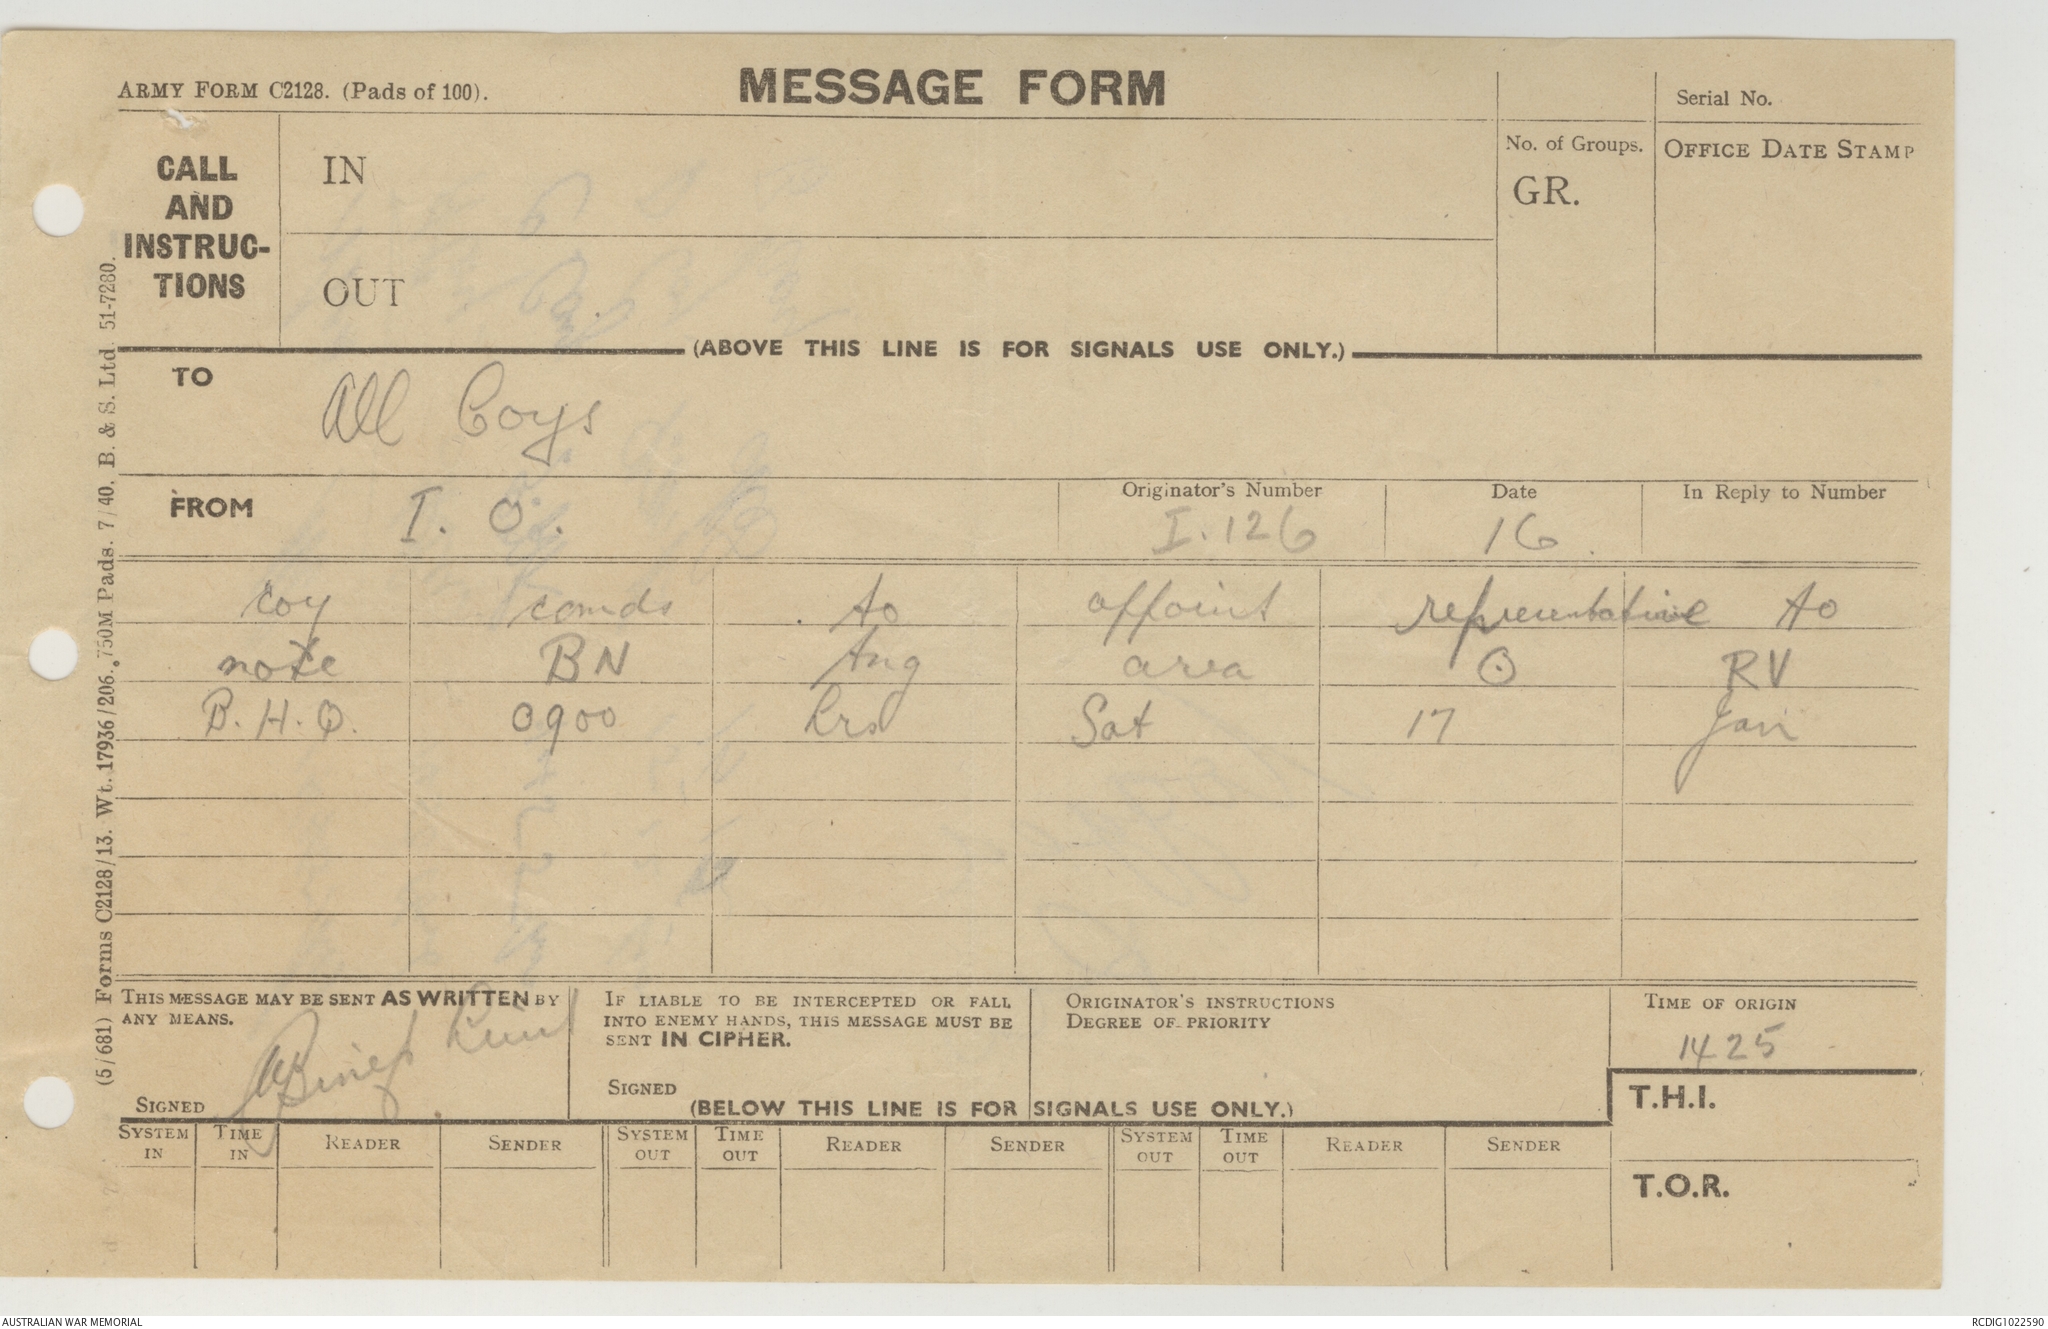 ARMY FORM C2128. (Pads of 100).
MESSAGE FORM
Serial No.
CALL AND INSTRUC-TIONS
IN
No. of Groups.
GR.
OFFICE DATE STAMP
OUT
(ABOVE THIS LINE IS FOR SIGNALS USE ONLY.)
TO
All Coys
FROM
I. O.
Originator's Number
I.126
Date
16.
In Reply to Number
coy comds to appoint representative to
note BN tng area ⊙ RV
B.H.Q. 0900 hrs Sat 17 Jan
THIS MESSAGE MAY BE SENT AS WRITTEN BY
ANY MEANS.
SIGNED
IF LIABLE TO BE INTERCEPTED OR FALL
INTO ENEMY HANDS, THIS MESSAGE MUST BE
SENT IN CIPHER.
SIGNED
ORIGINATOR'S INSTRUCTIONS
DEGREE OF PRIORITY
TIME OF ORIGIN
1425
(BELOW THIS LINE IS FOR SIGNALS USE ONLY.)
T.H.I.
SYSTEM IN
TIME IN
READER
SENDER
SYSTEM OUT
TIME OUT
READER
SENDER
SYSTEM OUT
TIME OUT
READER
SENDER
T.O.R.
(5/681) Forms C2128/13. Wt. 17936/206. 750M Pads. 7/40. B. & S. Ltd. 51-7280.
AUSTRALIAN WAR MEMORIAL
RCDIG1022590